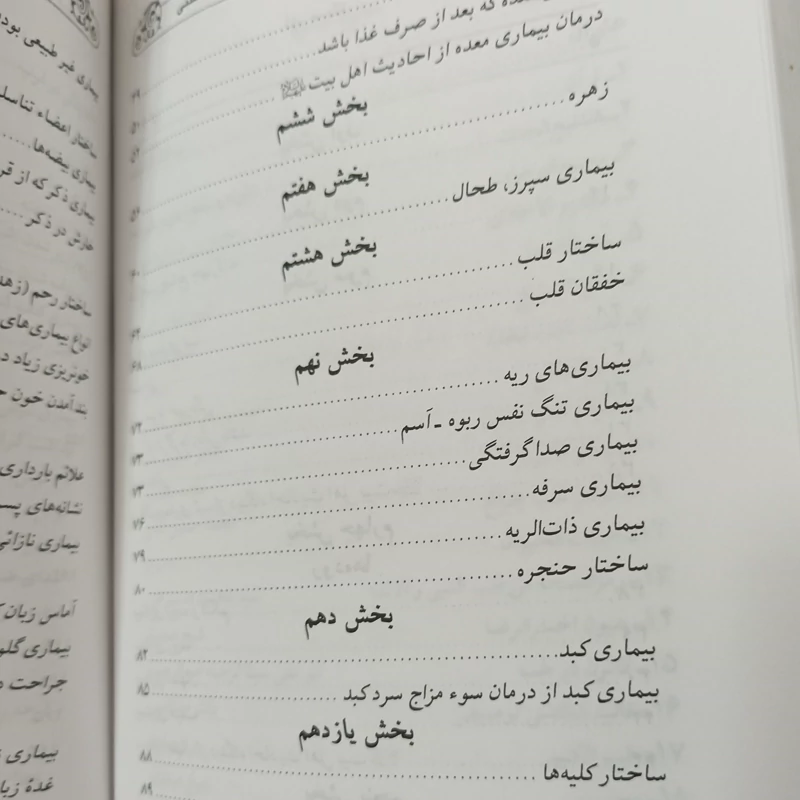 که بعد از صرف غذا باشد ۴۹
درمان بیماری معده از احادیث اهل بیت ۵۰
بخش ششم
زهره ۵۶
بخش هفتم
بیماری سپرز، طحال ۵۹
بخش هشتم
ساختار قلب ۶۰
خفقان قلب ۶۴
۶۸
بخش نهم
بیماری‌های ریه
بیماری تنگ نفس ربوه - آسم ۷۲
بیماری صدا گرفتگی ۷۳
بیماری سرفه ۷۳
بیماری ذات‌الریه ۷۶
ساختار حنجره ۷۹
۸۰
بخش دهم
بیماری کبد ۸۲
بیماری کبد از درمان سوء مزاج سرد کبد ۸۵
بخش یازدهم
ساختار کلیه‌ها ۸۸
۸۹
بیماری غیر طبیعی
ساختار اعضاء
بیماری بیضه‌ها
بیماری ذکر که از
خارش در ذکر
ساختار رحم
انواع بیماری‌های
خونریزی زیاد
بند آمدن خون
علائم بارداری
نشانه‌های
بیماری نازائی
آماس زبان
بیماری
جراحت
بیماری
غدهٔ